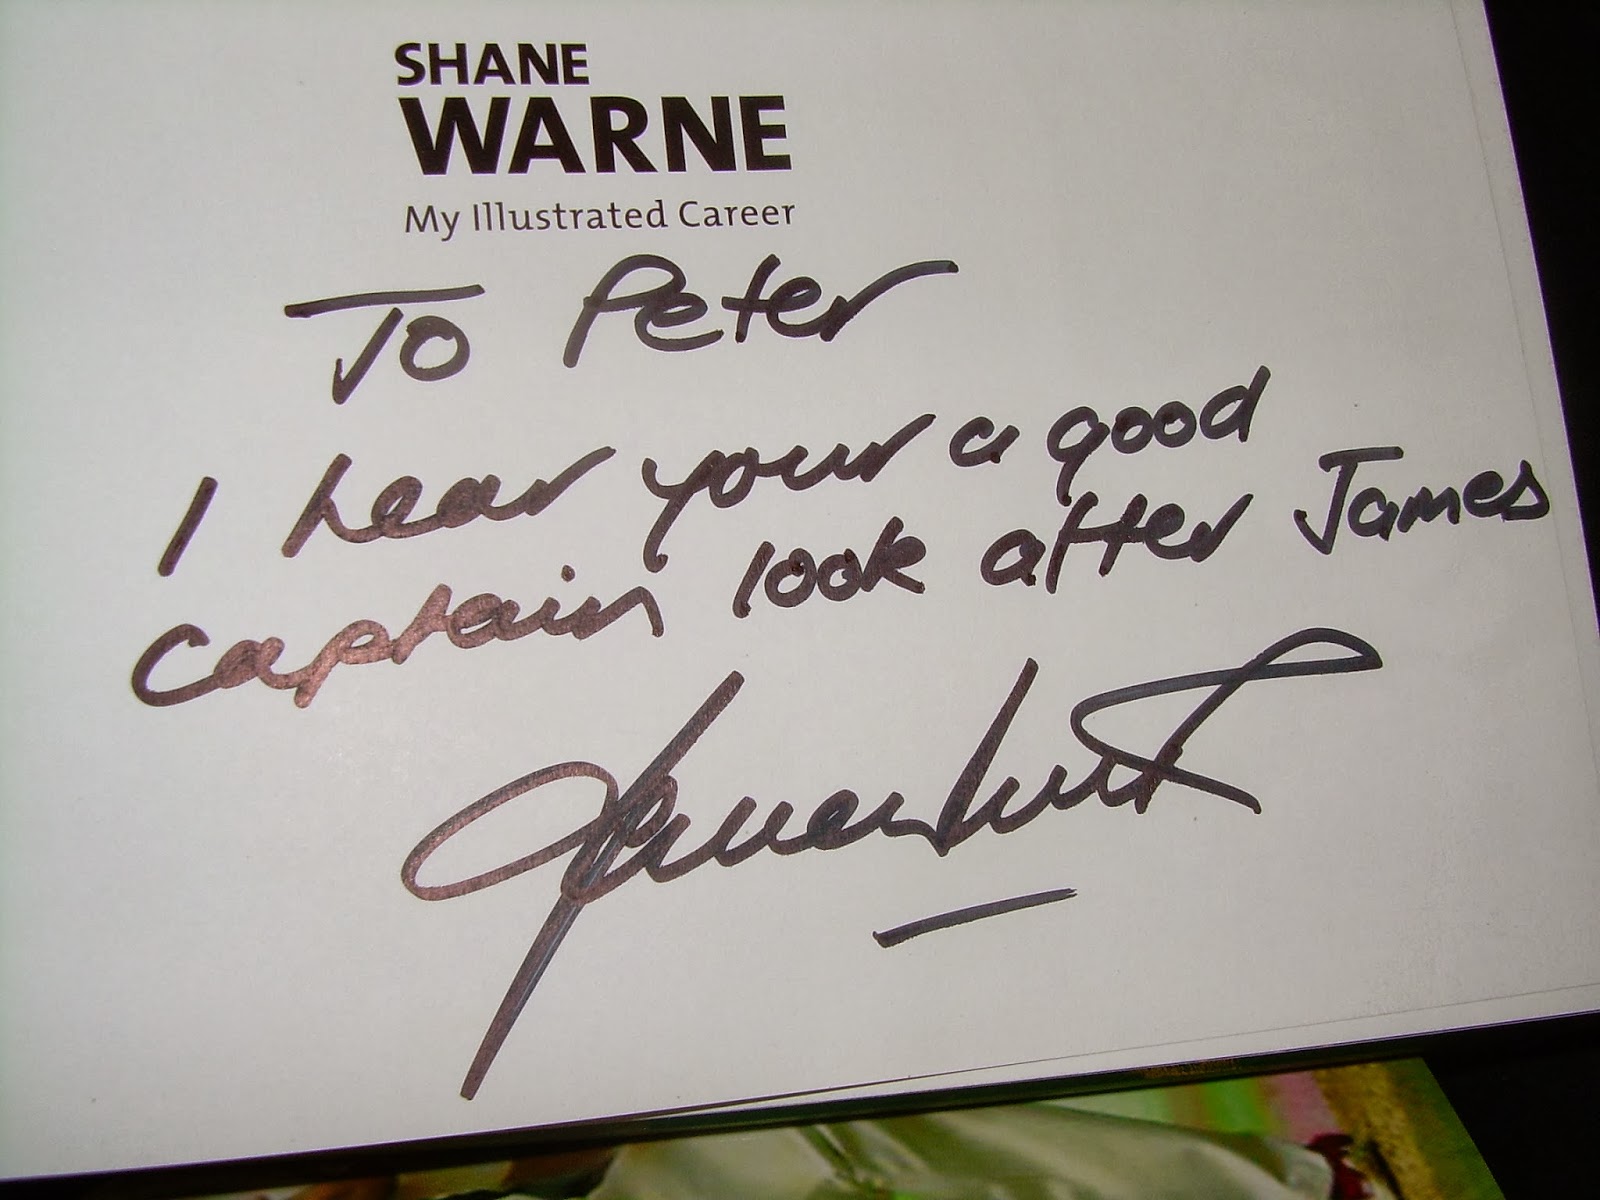 SHANE
WARNE
My Illustrated Career
To Peter
I hear your a good
captain look after James